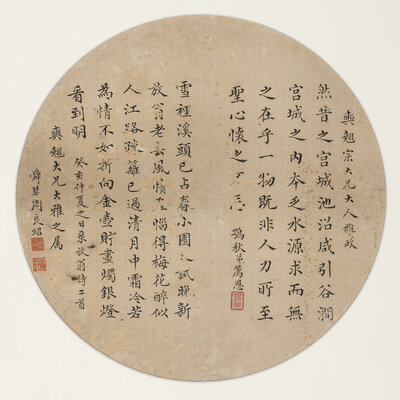 奭翹宗大兄大人雅政
然昔之宮城池沼咸引谷澗
宮城之內本乏水源求而無
之在乎一物既非人力所至
聖心懷之不忘
鶚秋弟恩
雪裡溪頭已占春小園又試晚新
放翁老去風情在惱得梅花醉似
人江路疎籬已過清月中霜冷若
為情不如折向金壺貯畫燭銀燈
看到明
癸亥仲夏之日放翁詩二首
奭翹大兄大雅之屬
舜琴周良